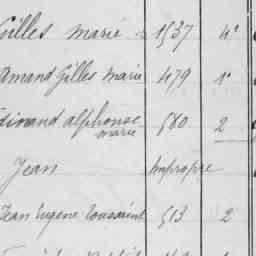 Gilles Marie 1537 4°
Amand Gilles Marie 479 1°
dinand alphonse 580 2
marie
Jean Impropre
Jean Eugene Toussaint 513 2